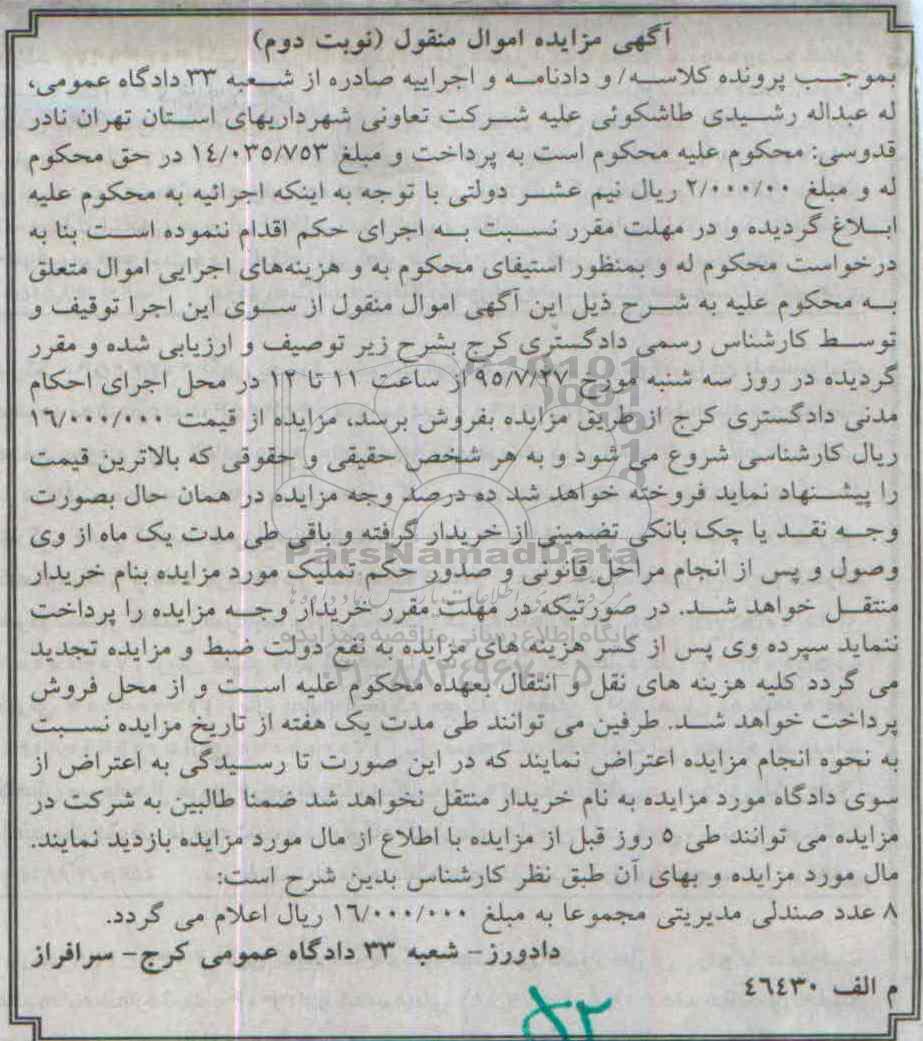 آگهی مزایده اموال منقول (نوبت دوم)
بموجب پرونده کلاسه/ و دادنامه و اجراییه صادره از شعبه ۳۳ دادگاه عمومی،
له عبداله رشیدی طاشکوئی علیه شرکت تعاونی شهرداریهای استان تهران نادر
قدوسی: محکوم علیه محکوم است به پرداخت و مبلغ ۱۴/۰۳۵/۷۵۳ در حق محکوم
له و مبلغ ۲/۰۰۰/۰۰ ریال نیم عشر دولتی با توجه به اینکه اجرائیه به محکوم علیه
ابلاغ گردیده و در مهلت مقرر نسبت به اجرای حکم اقدام ننموده است بنا به
درخواست محکوم له و بمنظور استیفای محکوم به و هزینه‌های اجرایی اموال متعلق
به محکوم علیه به شرح ذیل این آگهی اموال منقول از سوی این اجرا توقیف و
توسط کارشناس رسمی دادگستری کرج بشرح زیر توصیف و ارزیابی شده و مقرر
گردیده در روز سه شنبه مورخ ۹۵/۷/۲۷ از ساعت ۱۱ تا ۱۲ در محل اجرای احکام
مدنی دادگستری کرج از طریق مزایده بفروش برسد، مزایده از قیمت ۱۶/۰۰۰/۰۰۰
ریال کارشناسی شروع می شود و به هر شخص حقیقی و حقوقی که بالاترین قیمت
را پیشنهاد نماید فروخته خواهد شد ده درصد وجه مزایده در همان حال بصورت
وجه نقد یا چک بانکی تضمینی از خریدار گرفته و باقی طی مدت یک ماه از وی
ParsNamadData
وصول و پس از انجام مراحل قانونی و صدور حکم تملیک مورد مزایده بنام خریدار
منتقل خواهد شد. در صورتیکه در مهلت مقرر خریدار وجه مزایده را پرداخت
پایگاه اطلاع رسانی مناقصه و مزایده
ننماید سپرده وی پس از کسر هزینه های مزایده به نفع دولت ضبط و مزایده تجدید
۰۲۱-۸۸۳۴۹۶۷۰-۵
می گردد کلیه هزینه های نقل و انتقال بعهده محکوم علیه است و از محل فروش
پرداخت خواهد شد. طرفین می توانند طی مدت یک هفته از تاریخ مزایده نسبت
به نحوه انجام مزایده اعتراض نمایند که در این صورت تا رسیدگی به اعتراض از
سوی دادگاه مورد مزایده به نام خریدار منتقل نخواهد شد ضمنا طالبین به شرکت در
مزایده می توانند طی ۵ روز قبل از مزایده با اطلاع از مال مورد مزایده بازدید نمایند.
مال مورد مزایده و بهای آن طبق نظر کارشناس بدین شرح است:
۸ عدد صندلی مدیریتی مجموعا به مبلغ ۱۶/۰۰۰/۰۰۰ ریال اعلام می گردد.
دادورز- شعبه ۳۳ دادگاه عمومی کرج- سرافراز
م الف ۴۶۴۳۰